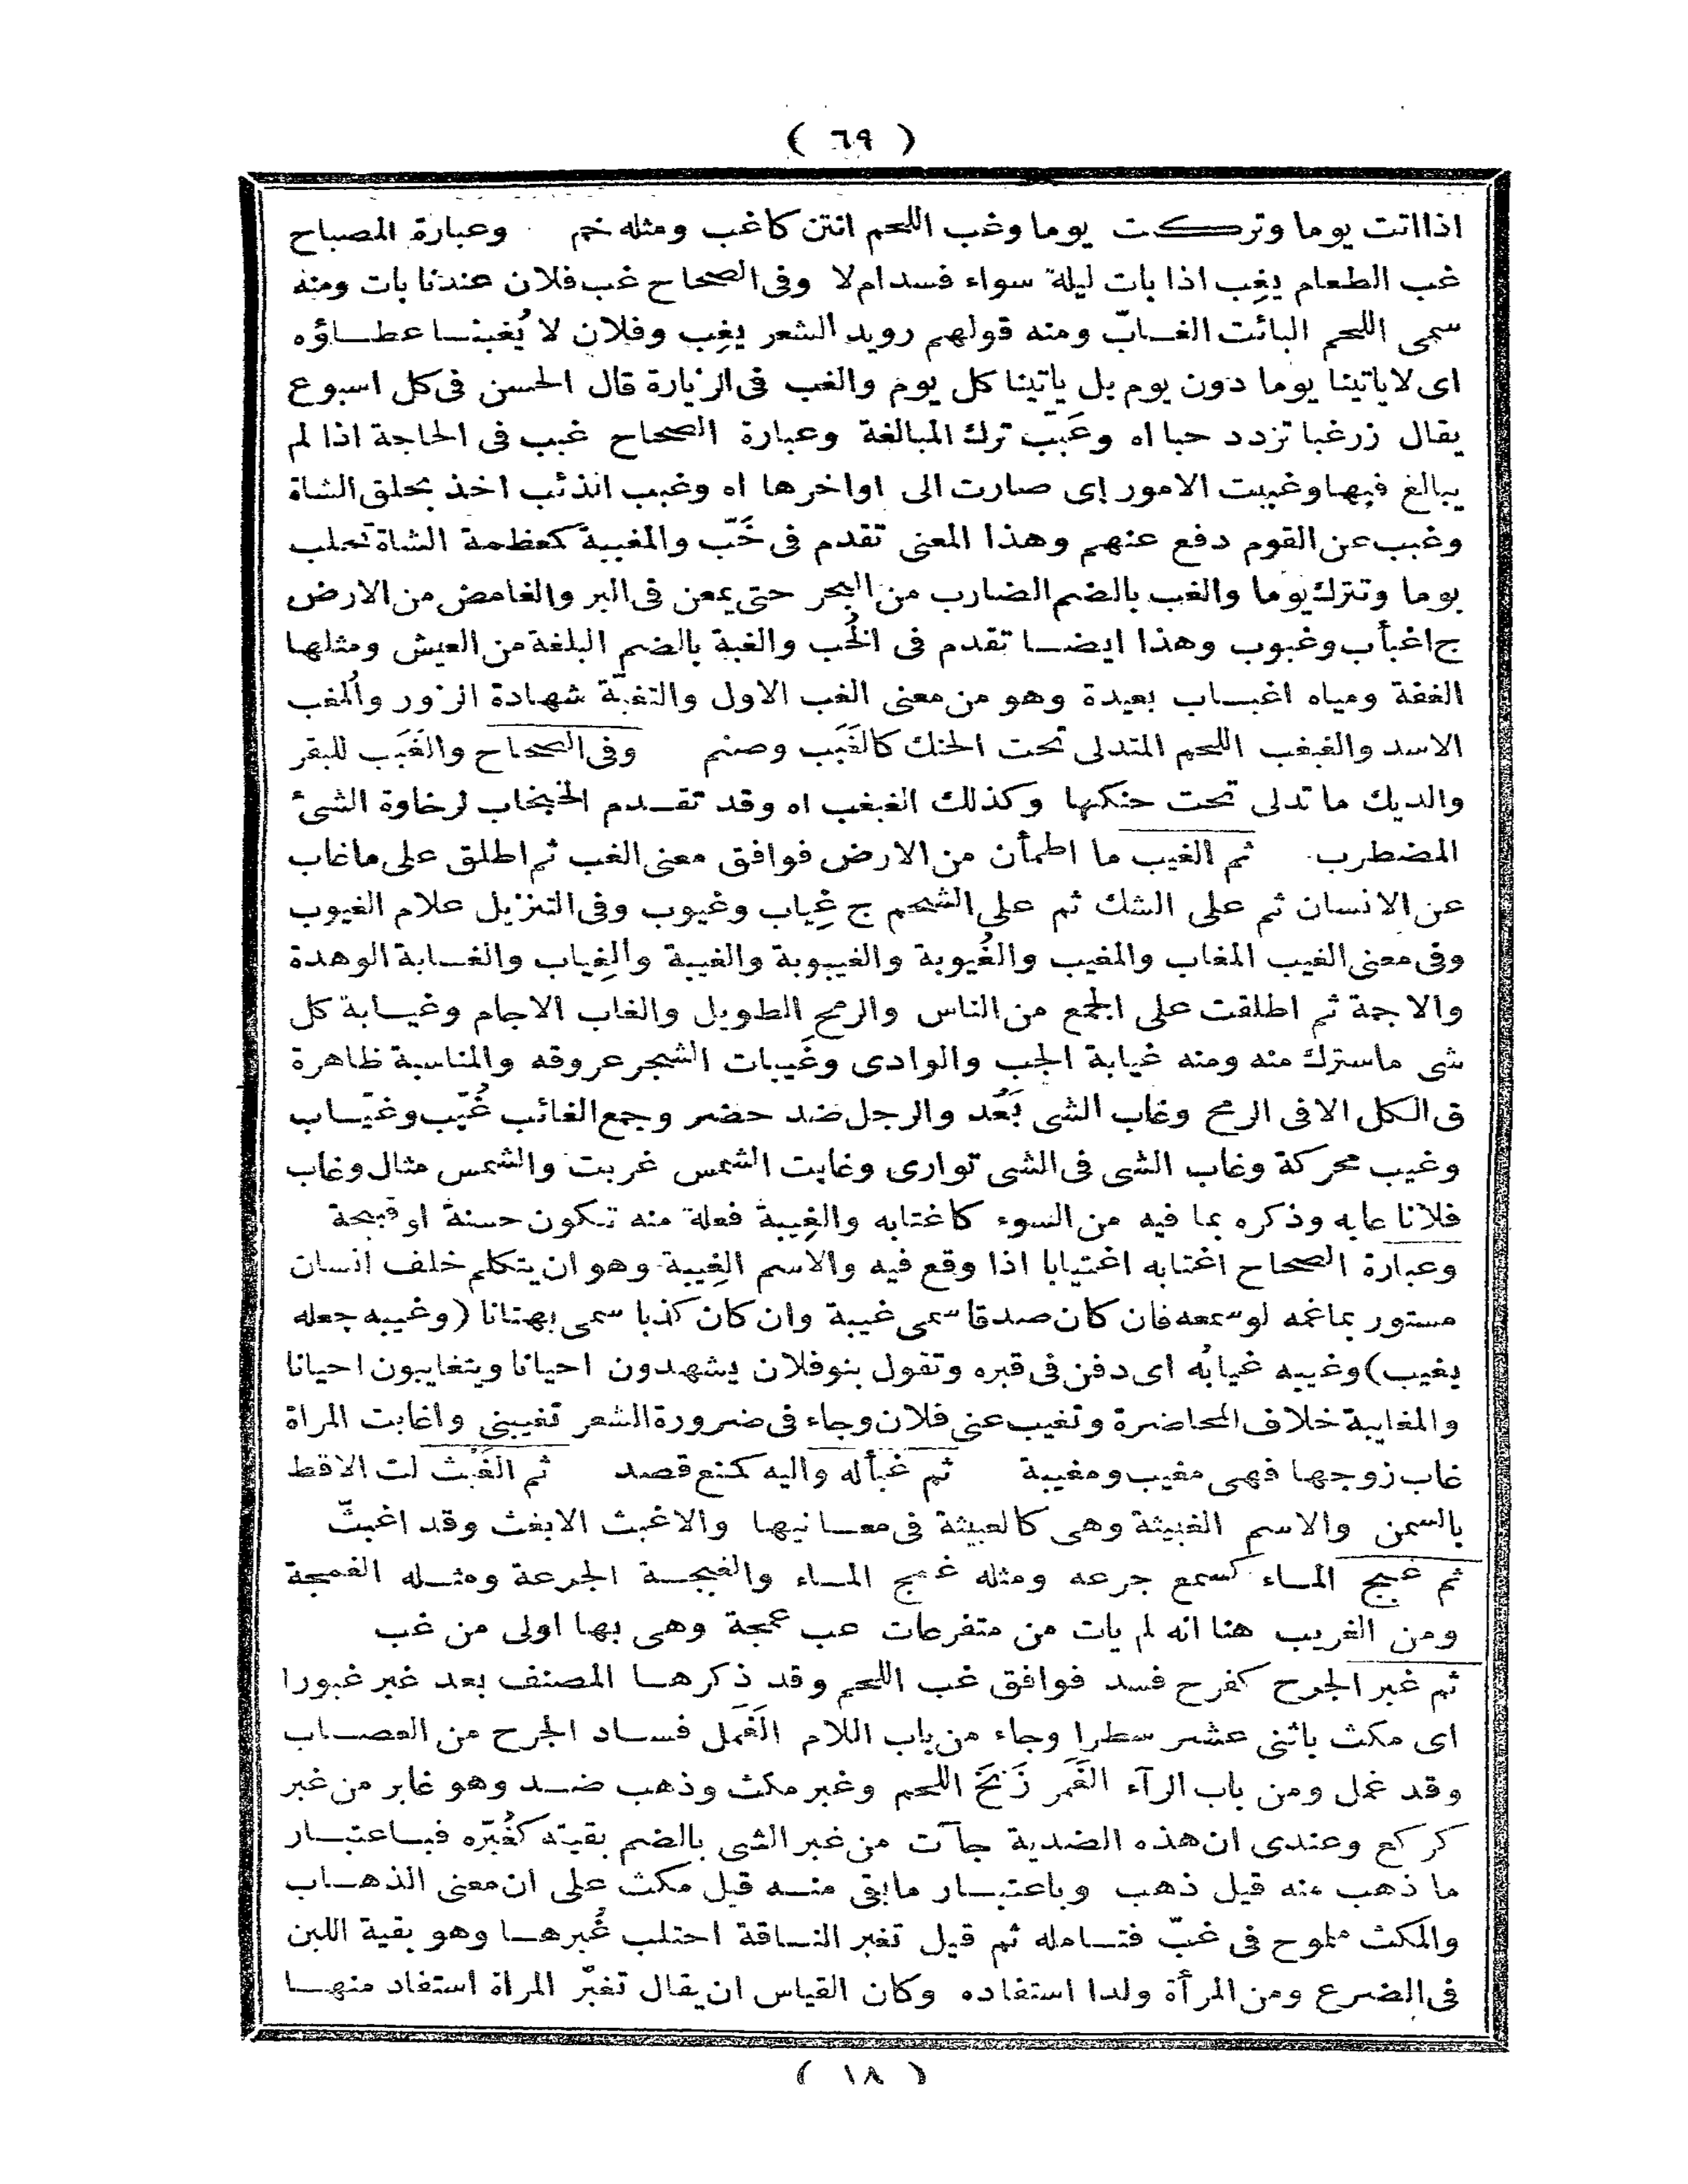 ( ٦٩ )
اذا اتت يوما وتركت يوما وغب اللحم انتن كاغب ومثله خم وعبارة المصباح
غب الطعام يغِب اذا بات ليلة سواء فسد ام لا وفى الصحاح غب فلان عندنا بات ومنه
سمى اللحم البائت الغـابّ ومنه قولهم رويد الشعر يغِب وفلان لا يُغبنـا عطـاؤه
اى لاياتينا يوما دون يوم بل ياتينا كل يوم والغب فى الزيارة قال الحسن فى كل اسبوع
يقال زرغبا تزدد حبا اه وغَبّب ترك المبالغة وعبارة الصحاح غبب فى الحاجة اذا لم
يبالغ فيها وغبت الامور اى صارت الى اواخرها اه وغبب الذئب اخذ بحلق الشاة
وغبب عن القوم دفع عنهم وهذا المعنى تقدم فى خَبّ والمغببة كمعظمة الشاة تحلب
يوما وتترك يوما والغب بالضم الضارب من البحر حتى يمعن فى البر والغامض من الارض
ج اغبأب وغبوب وهذا ايضـا تقدم فى الخُب والغبة بالضم البلغة من العيش ومثلها
الغفة ومياه اغبـاب بعيدة وهو من معنى الغب الاول والتغبّة شهادة الزور والُمغب
الاسد والغبغب اللحم المتدلى تحت الحنك كالغَبَب وصنم وفى الصحاح والغَبَب للبقر
والديك ما تدلى تحت حنكها وكذلك الغبغب اه وقد تقـدم الخبخاب لرخاوة الشئ
المضطرب ثم الغيب ما اطمأن من الارض فوافق معنى الغب ثم اطلق على ماغاب
عن الانسان ثم على الشك ثم على الشحم ج غِياب وغيوب وفى التنزيل علام الغيوب
وفى معنى الغيب المغاب والمغيب والغُيوبة والغيبوبة والغيبة والغِياب والغـابة الوهدة
والاجمة ثم اطلقت على الجمع من الناس والرمح الطويل والغاب الاجام وغيـابة كل
شى ماسترك منه ومنه غيابة الجب والوادى وغَيبات الشجر عروقه والمناسبة ظاهرة
فى الكل الا فى الرمح وغاب الشى بَعُد والرجل ضد حضر وجمع الغائب غُيّب وغيّـاب
وغيب محركة وغاب الشى فى الشى توارى وغابت الشمس غربت والشمس مثال وغاب
فلانا عابه وذكره بما فيه من السوء كاغتابه والغِيبة فعلة منه تكون حسنة او قبيحة
وعبارة الصحاح اغتابه اغتيابا اذا وقع فيه والاسم الغِيبة وهو ان يتكلم خلف انسان
مستور بماغمه لو سمعه فان كان صدقا سمى غيبة وان كان كذبا سمى بهتانا (وغيبه جعله
يغيب) وغيبه غيابُه اى دفن فى قبره وتقول بنو فلان يشهدون احيانا ويتغايبون احيانا
والمغايبة خلاف المحاضرة وتغيب عنى فلان وجاء فى ضرورة الشعر تغيبنى واغابت المراة
غاب زوجها فهى مغيب ومغيبة ثم غبأله واليه كمنع قصد ثم الغَبْث لت الاقط
بالسمن والاسم الغبيثة وهى كالعبيثة فى معـانيها والاغبث الابغث وقد اغبثّ
ثم غبج المـاء كسمع جرعه ومثله غمج المـاء والغبجـة الجرعة ومثـله الغمجة
ومن الغريب هنا انه لم يات من متفرعات عب عمجة وهى بها اولى من غب
ثم غبر الجرح كفرح فسد فوافق غب اللحم وقد ذكرهـا المصنف بعد غبر غبورا
اى مكث باثنى عشر سطرا وجاء من باب اللام الغَمَل فسـاد الجرح من العصـاب
وقد غمل ومن باب الرآء الغَمَر زَنَخَ اللحم وغبر مكث وذهب ضـد وهو غابر من غبر
كركع وعندى ان هذه الضدية جآت من غبر الشى بالضم بقيته كغُبّره فبـاعتبـار
ما ذهب منه قيل ذهب وباعتبـار مابقى منـه قيل مكث على ان معنى الذهـاب
والمكث ملموح فى غبّ فتـامله ثم قيل تغبر النـاقة احتلب غُبرهـا وهو بقية اللبن
فى الضرع ومن المرأة ولدا استفاده وكان القياس ان يقال تغبّر المراة استفاد منهـا
( ١٨ )